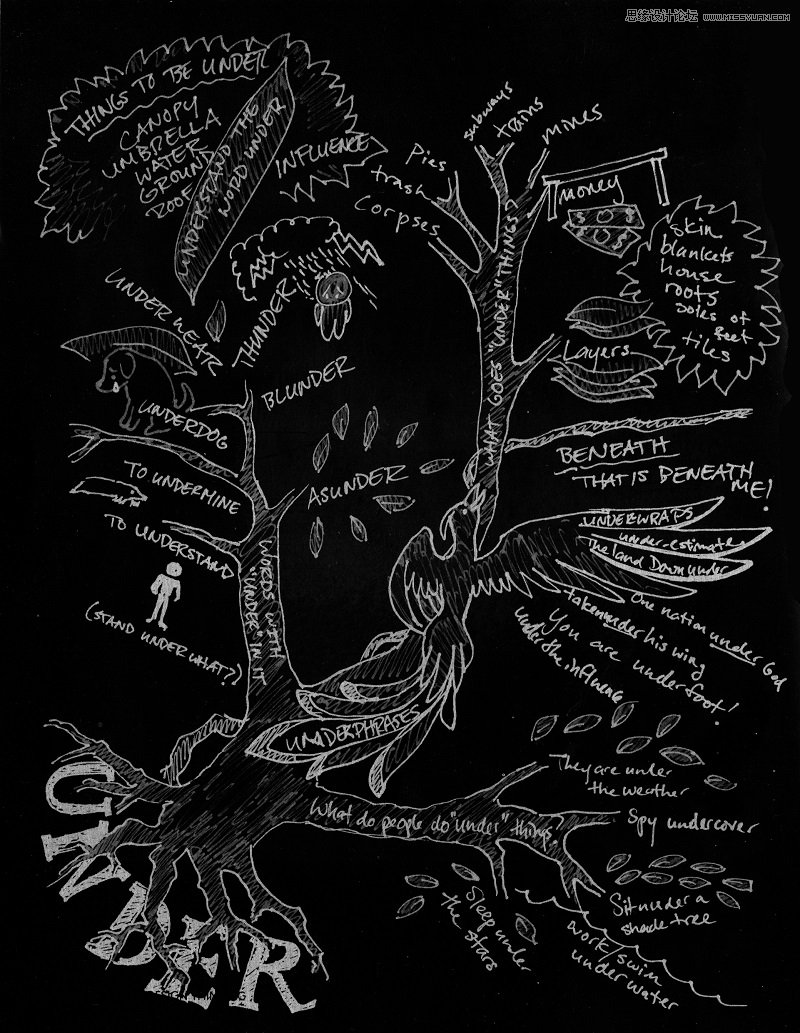 思缘设计论坛 WWW.MISSYUAN.COM
THINGS TO BE UNDER
CANOPY
UMBRELLA
WATER
GROUND
ROOF
UNDERSTAND THE
WORD UNDER
INFLUENCE
Pies
trash
Corpses
subways
trains
mines
money
$ O $
$ O $
skin
blankets
house
roots
soles of
feet
tiles
Layers
WHAT GOES "UNDER" THINGS?
UNDERWEAR
THUNDER
BLUNDER
UNDERDOG
ASUNDER
TO UNDERMINE
TO UNDERSTAND
(STAND UNDER WHAT?)
WORDS WITH
"UNDER" IN IT
BENEATH
THAT IS BENEATH
ME!
UNDERWRAPS
under-estimate
The land Down under
One nation under God
taken under his wing
You are underfoot!
under the influence
UNDERPHRASES
UNDER
What do people do "under" things?
They are under
the weather
Spy undercover
Sit under a
shade tree
work/swim
under water
Sleep under
the stars